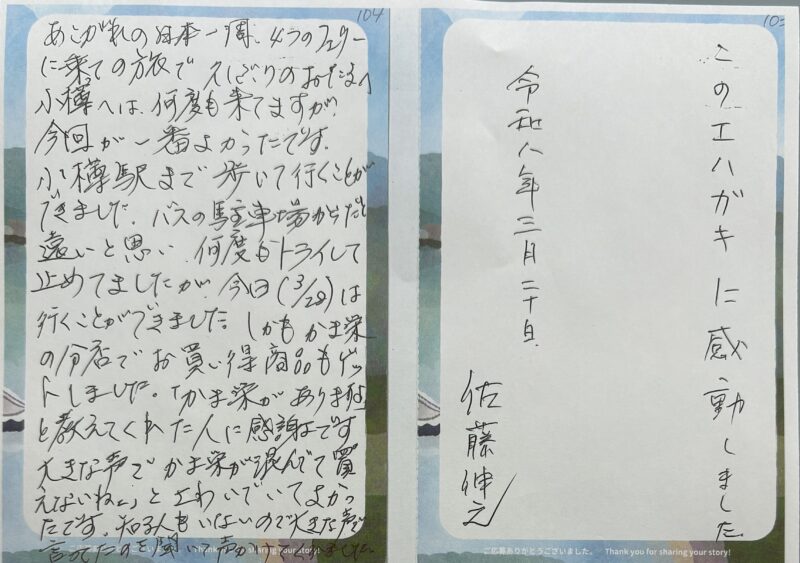 104
あこがれの日本一周、4つのフェリー
に乗ての旅で
小樽へは、何度も来てますが、
今回が一番よかったです。
小樽駅まで歩いて行くことが
できました。バスの駐車場からだと
遠いと思い、何度かトライして
止めてましたが、今日(3/20)は
行くことができました。しかもかま栄
の分店でお買い得商品もゲッ
トしました。「かま栄がありますよ」
と教えてくれた人に感謝です
大きな声でかま栄が混んでて買
えないね。」とさわいでいてよかっ
たです。知る人もいないので大きな声で
言ってたのを聞いて声かけてくれました。
ご応募ありがとうございました。 Thank you for sharing your story!
このエハガキに感動しました
令和八年三月二十日
佐藤伸之
ご応募ありがとうございました。 Thank you for sharing your story!